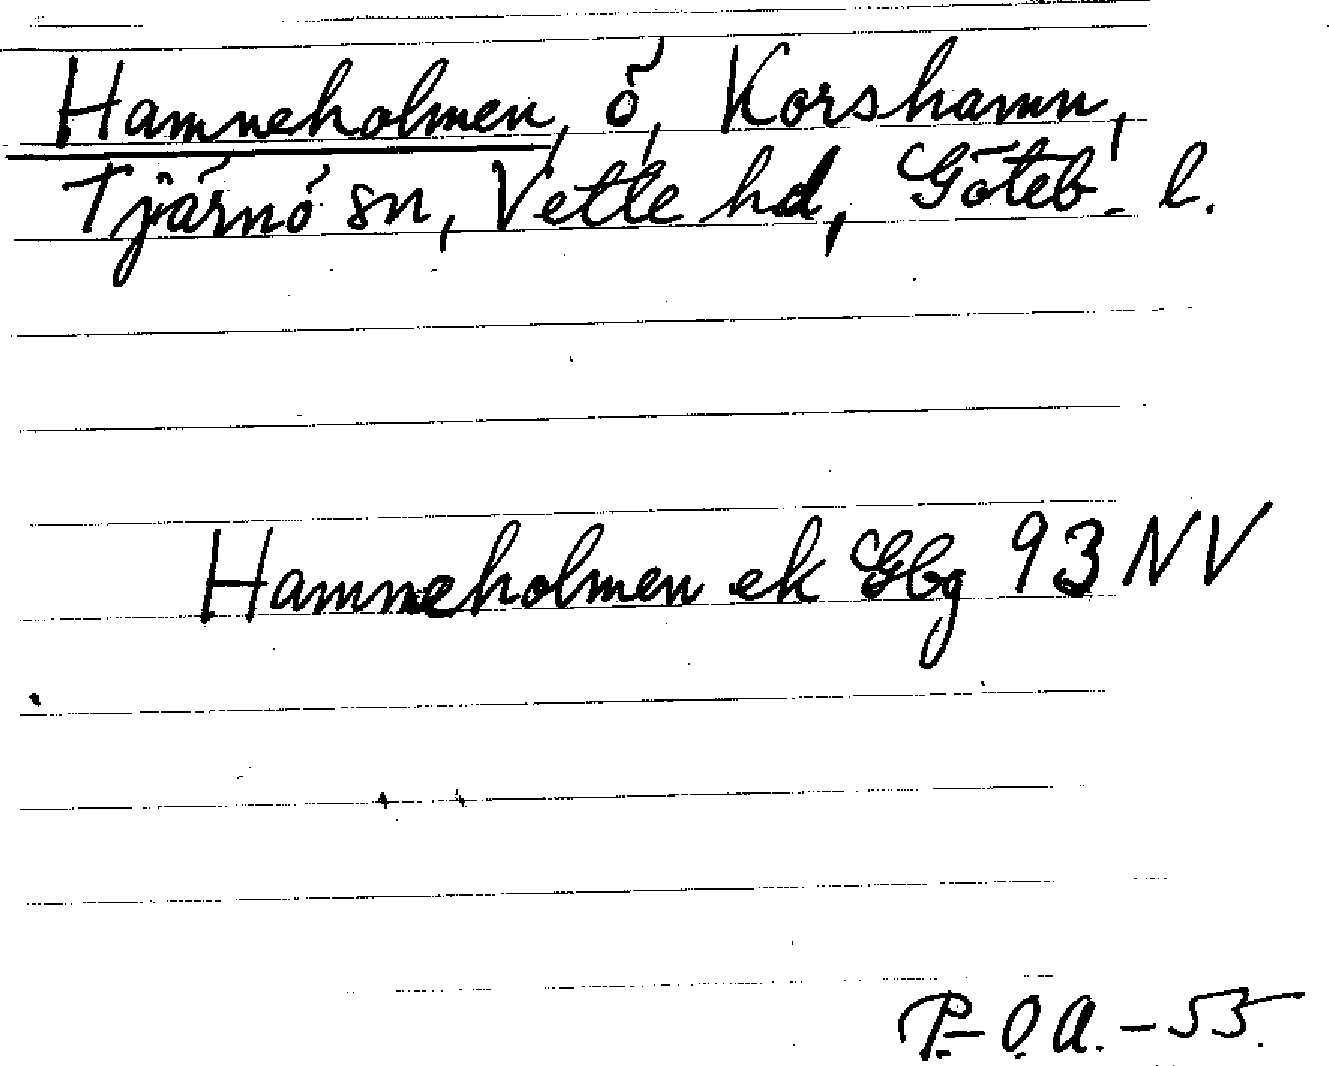 Hamneholmen, ö, Korshamn,
Tjärnö sn, Vette hd, Göteb. l.
Hamneholmen ek Gbg 93 NV
P.-O.A. - 55.